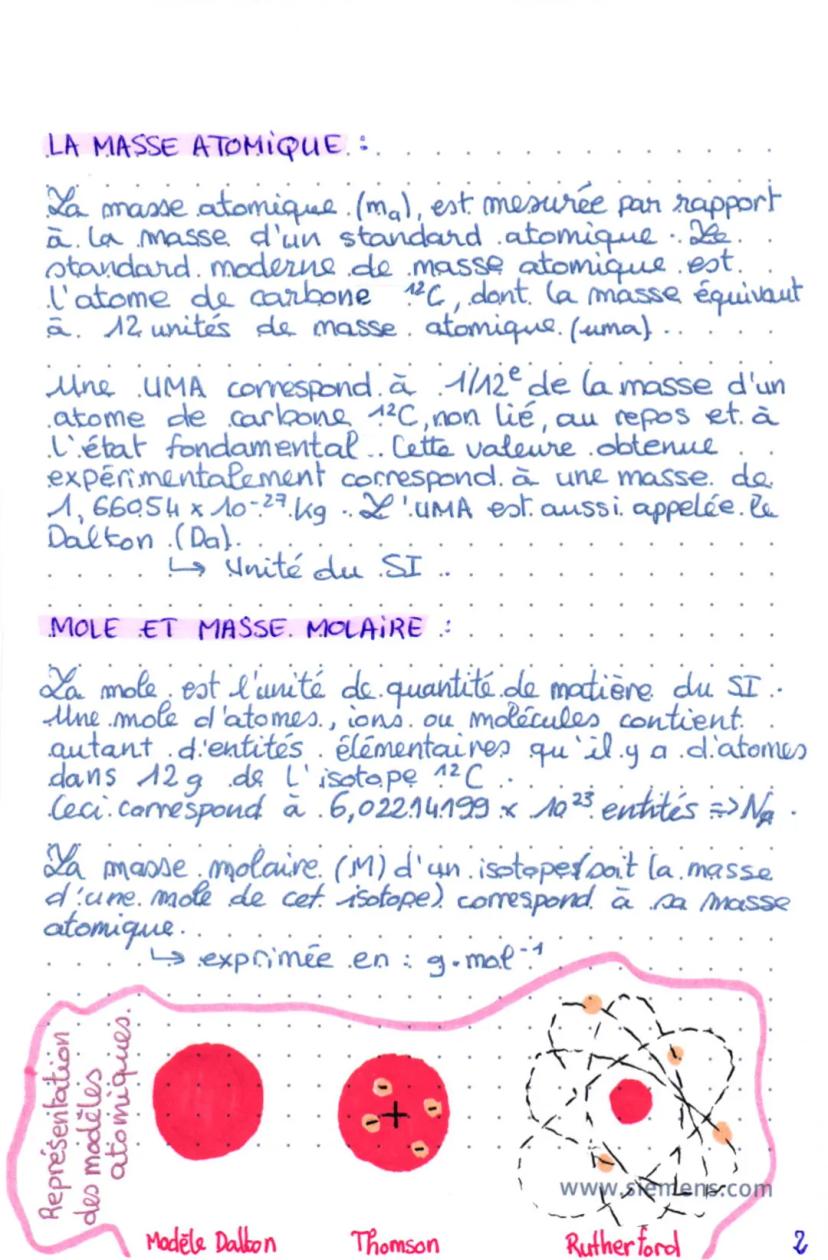 LA MASSE ATOMIQUE :
La masse atomique (mₐ), est mesurée par rapport
à la masse d'un standard atomique. Le
standard moderne de masse atomique est
l'atome de carbone ¹²C, dont la masse équivaut
à 12 unités de masse atomique (uma).
Une UMA correspond à 1/12ᵉ de la masse d'un
atome de carbone ¹²C, non lié, au repos et à
l'état fondamental. Cette valeure obtenue
expérimentalement correspond à une masse de
1,66054 x 10⁻²⁷ kg. L'UMA est aussi appelée le
Dalton (Da).
↳ Unité du SI.
MOLE ET MASSE MOLAIRE :
La mole est l'unité de quantité de matière du SI.
Une mole d'atomes, ions ou molécules contient
autant d'entités élémentaires qu'il y a d'atomes
dans 12 g de l'isotope ¹²C.
Ceci correspond à 6,02214199 x 10²³ entités => Nₐ.
La masse molaire (M) d'un isotope (soit la masse
d'une mole de cet isotope) correspond à sa masse
atomique.
↳ exprimée en : g.mol⁻¹
Représentation
des modèles
atomiques.
+
-
-
-
-
www.siemens.com
Modèle Dalton
Thomson
Rutherford
2